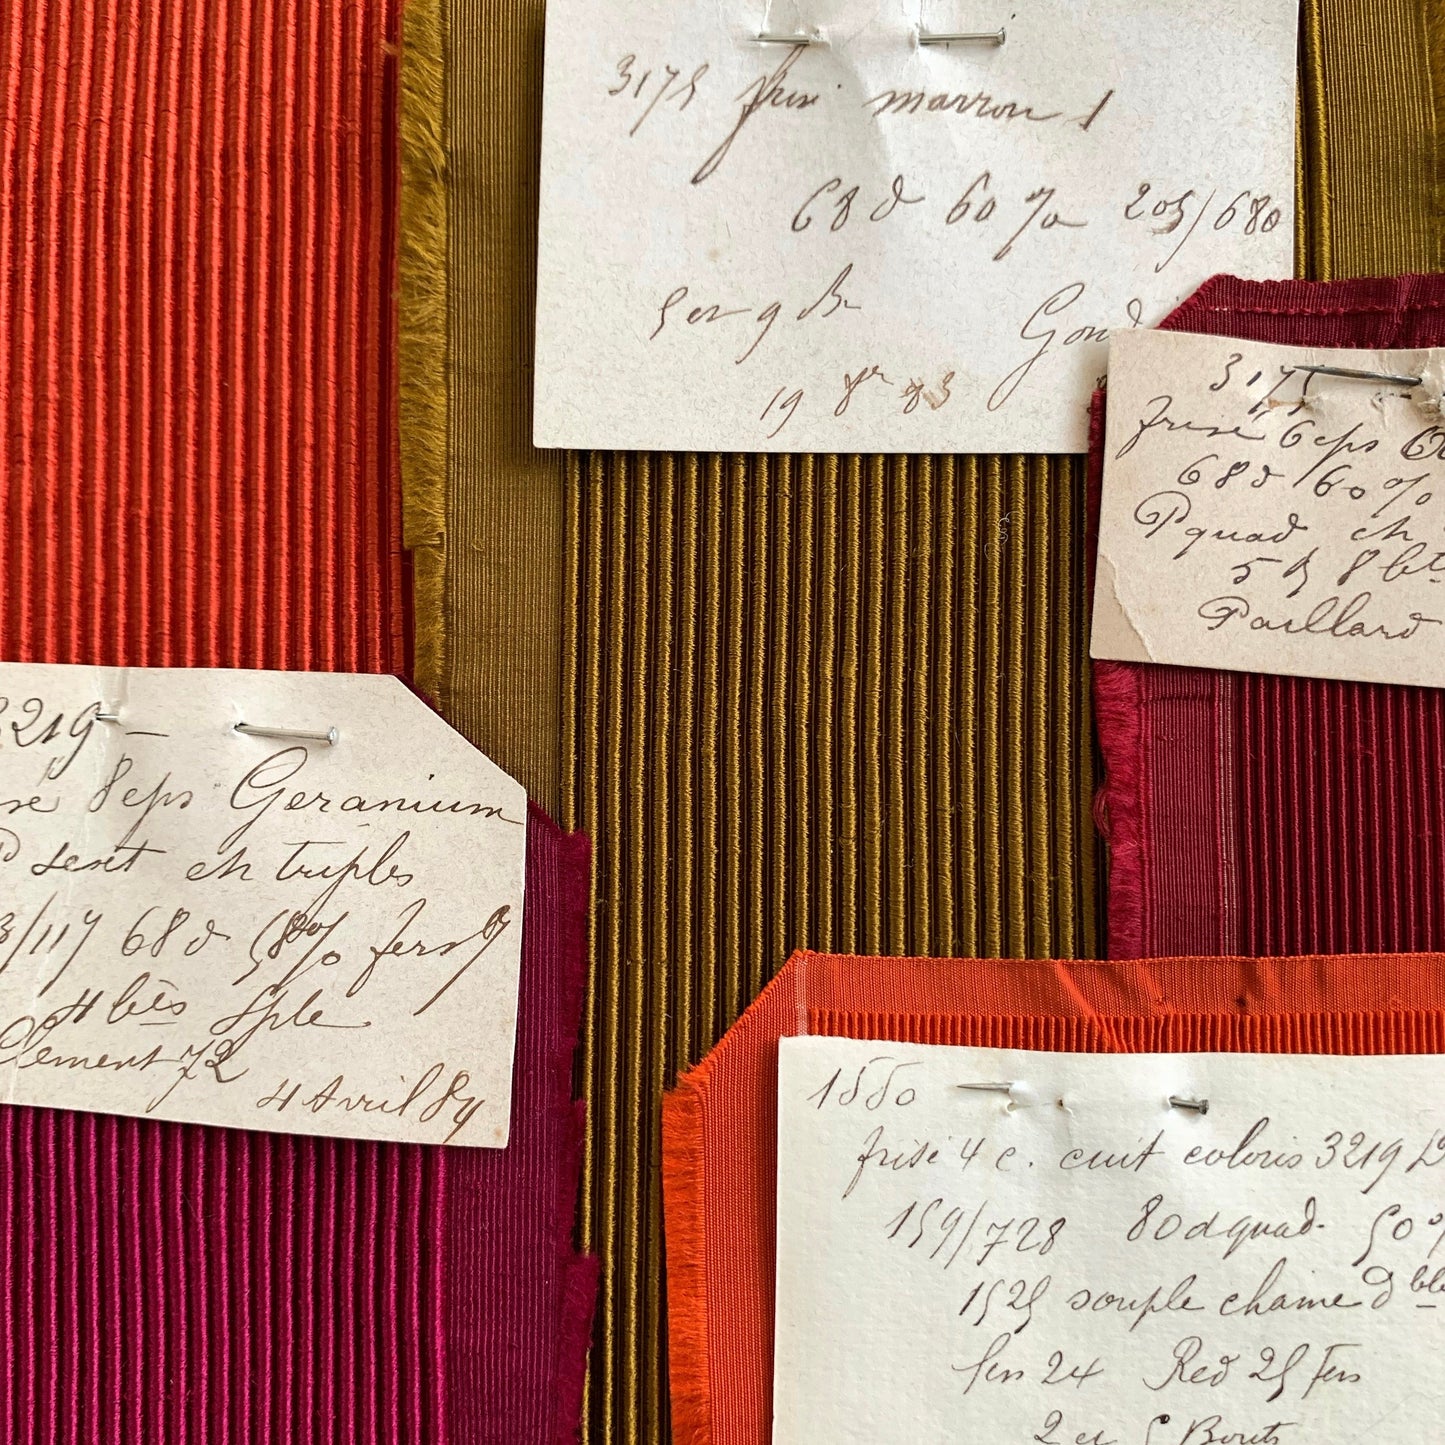 3175 frisé marron 1
68 d 60 % 205/680
19 8re 83
3175
frisé 6 eps
68 d 60 %
P quad ch
5 8 bts
Paillard
3219 —
8 eps Geranium
P ch triples
/117 68 d 58% fers 9
4 bts
Clement 72
4 Avril 84
1550
frisé 4 c. cuit coloris 3219
159/728 80 d quad. 50 %
1525 souple chaine D ble
fers 24 Red 25 Fers
2 et 5 Bouts